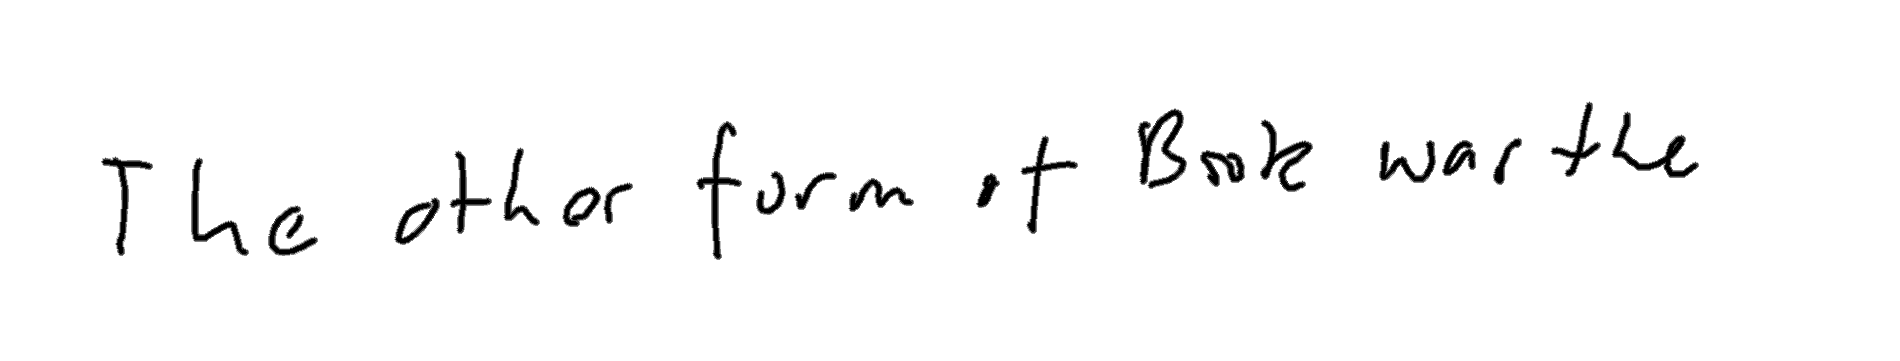 The other form of Book was the